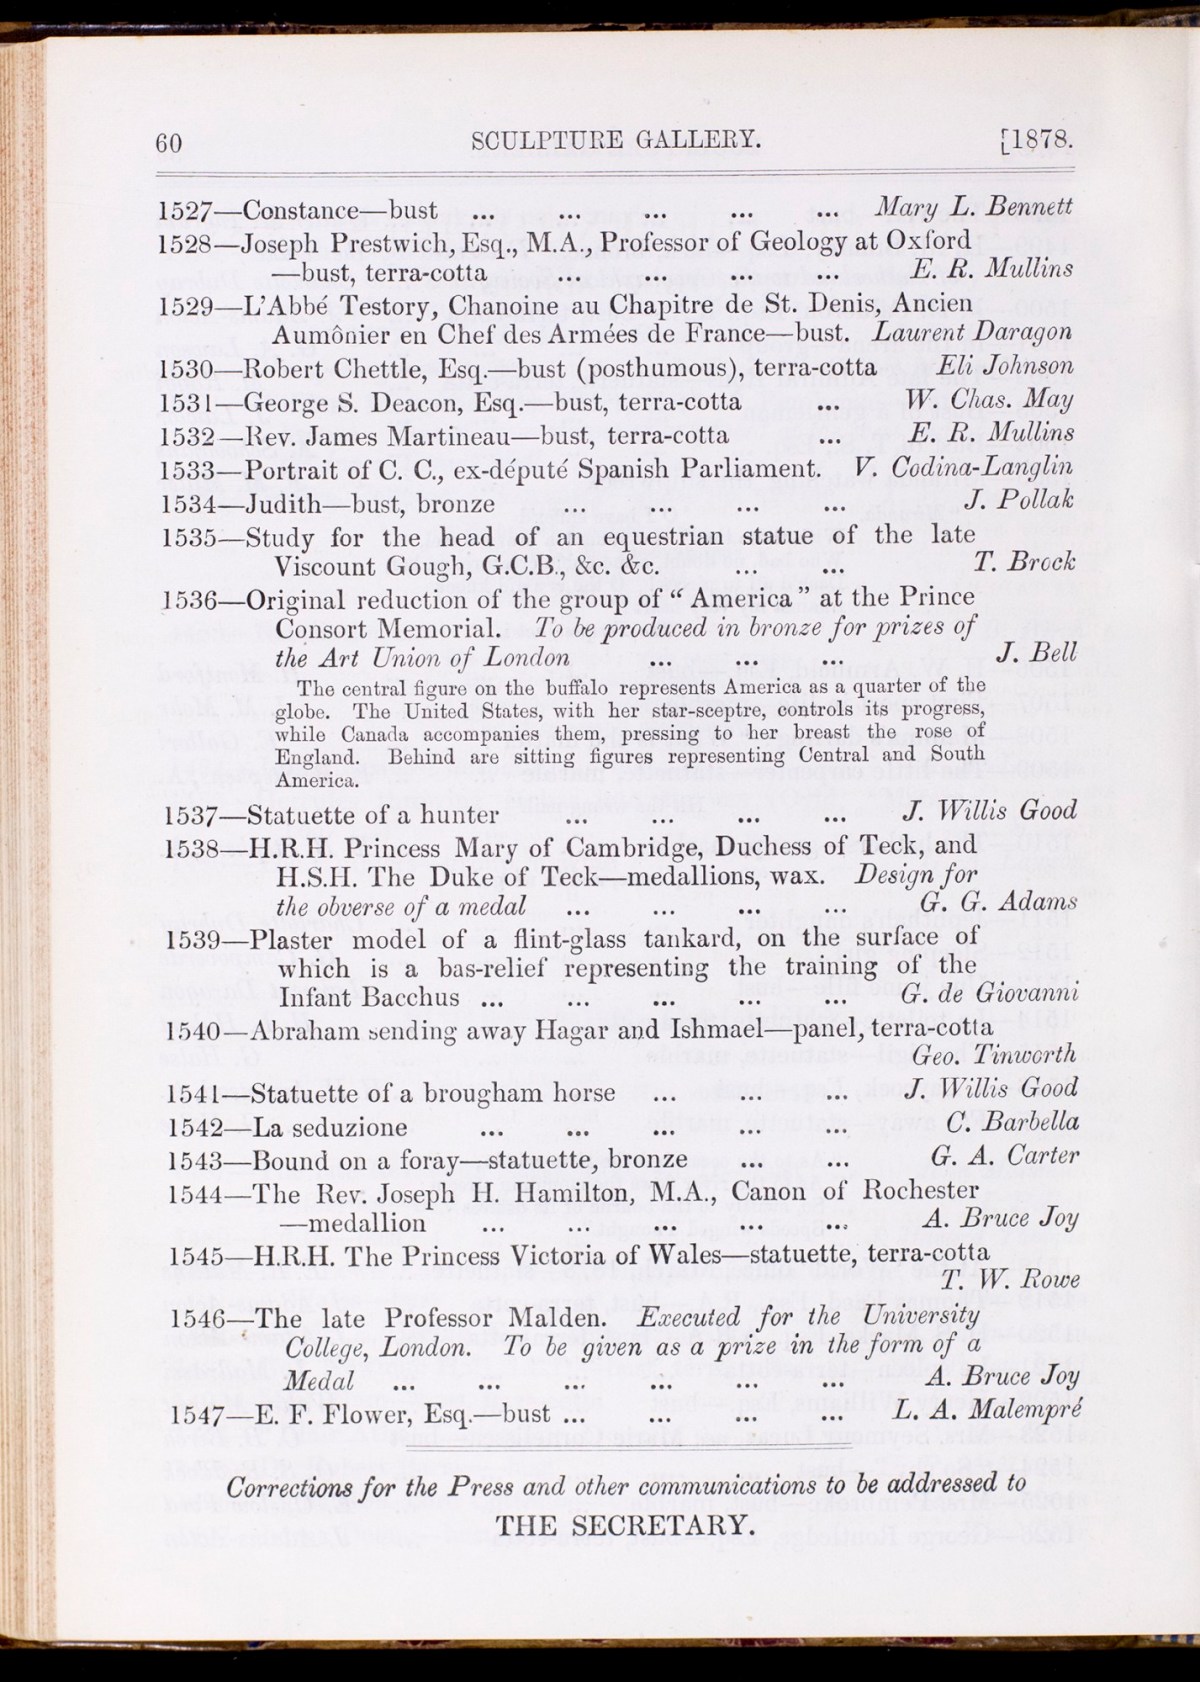 60 SCULPTURE GALLERY. [1878.
1527—Constance—bust ... ... ... ... ... Mary L. Bennett
1528—Joseph Prestwich, Esq., M.A., Professor of Geology at Oxford
—bust, terra-cotta ... ... ... ... E. R. Mullins
1529—L'Abbé Testory, Chanoine au Chapitre de St. Denis, Ancien
Aumônier en Chef des Armées de France—bust. Laurent Daragon
1530—Robert Chettle, Esq.—bust (posthumous), terra-cotta Eli Johnson
1531—George S. Deacon, Esq.—bust, terra-cotta ... W. Chas. May
1532—Rev. James Martineau—bust, terra-cotta ... E. R. Mullins
1533—Portrait of C. C., ex-député Spanish Parliament. V. Codina-Langlin
1534—Judith—bust, bronze ... ... ... ... J. Pollak
1535—Study for the head of an equestrian statue of the late
Viscount Gough, G.C.B., &c. &c. ... ... T. Brock
1536—Original reduction of the group of “ America ” at the Prince
Consort Memorial. To be produced in bronze for prizes of
the Art Union of London ... ... ... J. Bell
The central figure on the buffalo represents America as a quarter of the
globe. The United States, with her star-sceptre, controls its progress,
while Canada accompanies them, pressing to her breast the rose of
England. Behind are sitting figures representing Central and South
America.
1537—Statuette of a hunter ... ... ... ... J. Willis Good
1538—H.R.H. Princess Mary of Cambridge, Duchess of Teck, and
H.S.H. The Duke of Teck—medallions, wax. Design for
the obverse of a medal ... ... ... ... G. G. Adams
1539—Plaster model of a flint-glass tankard, on the surface of
which is a bas-relief representing the training of the
Infant Bacchus ... ... ... ... ... G. de Giovanni
1540—Abraham sending away Hagar and Ishmael—panel, terra-cotta
Geo. Tinworth
1541—Statuette of a brougham horse ... ... ... J. Willis Good
1542—La seduzione ... ... ... ... ... C. Barbella
1543—Bound on a foray—statuette, bronze ... ... G. A. Carter
1544—The Rev. Joseph H. Hamilton, M.A., Canon of Rochester
—medallion ... ... ... ... ... A. Bruce Joy
1545—H.R.H. The Princess Victoria of Wales—statuette, terra-cotta
T. W. Rowe
1546—The late Professor Malden. Executed for the University
College, London. To be given as a prize in the form of a
Medal ... ... ... ... ... ... A. Bruce Joy
1547—E. F. Flower, Esq.—bust ... ... ... ... L. A. Malempré
Corrections for the Press and other communications to be addressed to
THE SECRETARY.